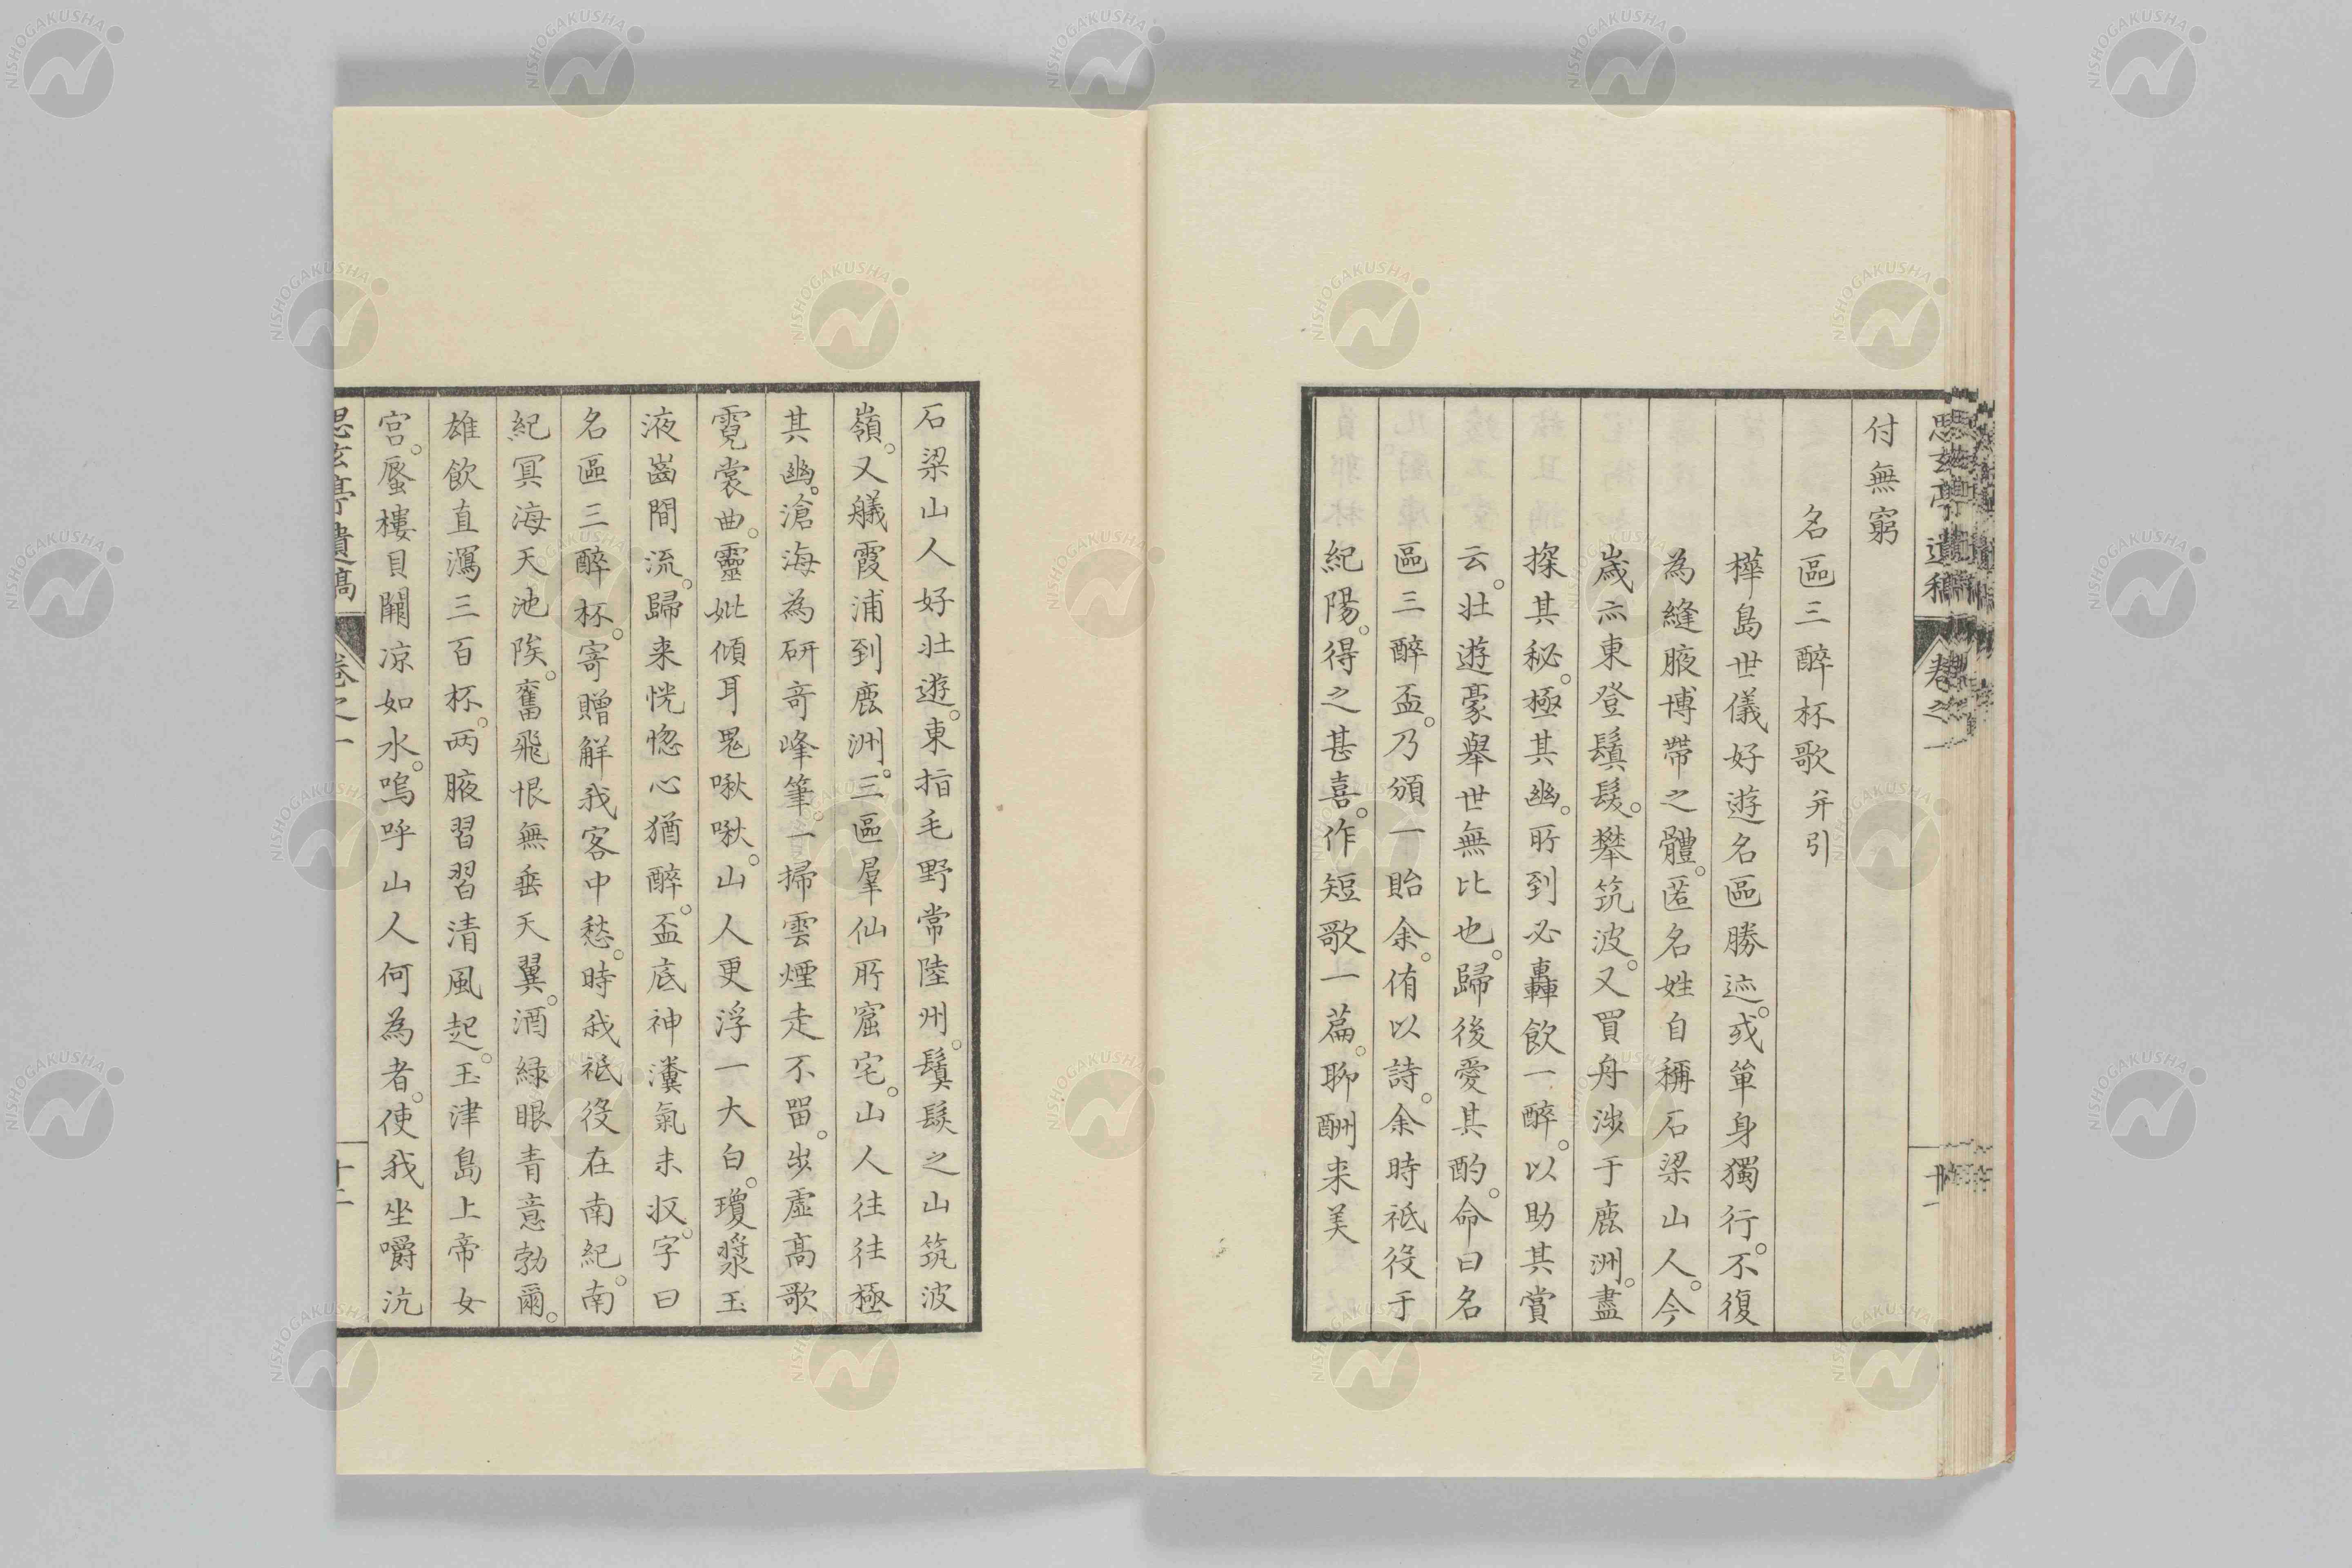 思玄亭遺稿 卷之一
付無窮
名區三醉杯歌 并引
樺島世儀好遊名區勝迹。或單身獨行。不復
為縫腋博帶之體。匿名姓自稱石梁山人。今
歲亦東登鬒髮。攀筑波。又買舟涉于鹿洲。盡
探其秘。極其幽。所到必轟飲一醉。以助其賞
云。壯遊豪舉世無比也。歸後愛其酌。命曰名
區三醉盃。乃頒一貽余。侑以詩。余時祗役于
紀陽。得之甚喜。作短歌一篇。聊酬来美
石梁山人好壯遊。東指毛野常陸州。鬒髮之山筑波
嶺。又艤霞浦到鹿洲。三區羣仙所窟宅。山人往往極
其幽。滄海為研奇峰筆。一掃雲煙走不畱。步虛高歌
霓裳曲。靈妣傾耳鬼啾啾。山人更浮一大白。瓊漿玉
液齒間流。歸来恍惚心猶醉。盃底神瀵氣未収。字曰
名區三醉杯。寄贈觧我客中愁。時我祗役在南紀。南
紀冥海天池隩。奮飛恨無垂天翼。酒緑眼青意勃爾。
雄飲直瀉三百杯。兩腋習習清風起。玉津島上帝女
宮。蜃樓貝闕凉如水。嗚呼山人何為者。使我坐嚼沆
思玄亭遺稿 卷之一 十二
NISHOGAKUSHA